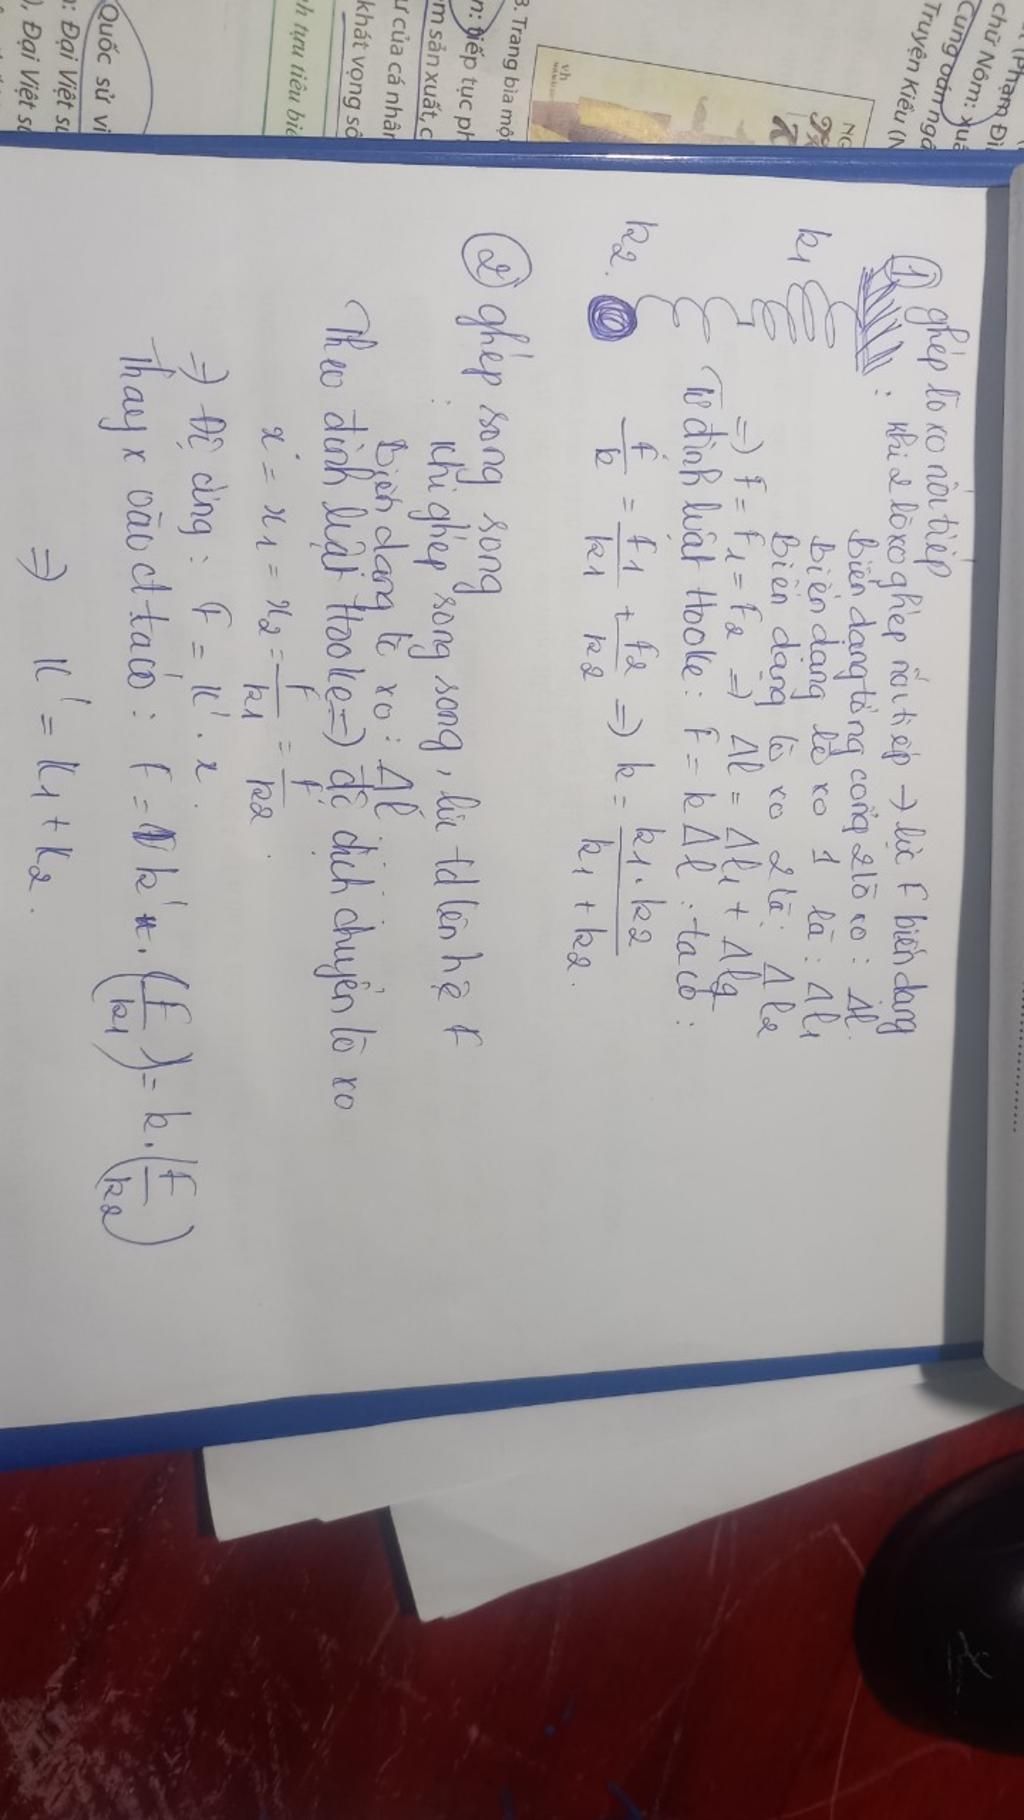 chữ Nôm: xuâ
Cung oán ngâ
Truyện Kiều (N
3. Trang bìa mộ
n: tiếp tục ph
m sản xuất, c
ư của cá nhân
khát vọng số
h tựu tiêu biể
Quốc sử vi
n: Đại Việt sử
), Đại Việt sử
① ghép lò xo nối tiếp
: khi 2 lò xo ghép nối tiếp → lực F biến dạng
Biến dạng tổng cộng 2 lò xo: Δl.
Biến dạng lò xo 1 là: Δl1
Biến dạng lò xo 2 là: Δl2
k1
k2.
=> F = F1 = F2 => Δl = Δl1 + Δl2
Từ định luật Hooke: F = k Δl: ta có:
F/k = F1/k1 + F2/k2 => k = k1.k2/k1 + k2.
② ghép song song
: Khi ghép song song, lực td lên hệ F
Biến dạng lò xo: Δl
Theo định luật Hooke => độ dịch chuyển lò xo
x = x1 = x2 = F/k1 = F/k2.
=> Độ cứng: F = k'.x.
Thay x vào ct ta có: F = k'.(F/k1) = k.(F/k2)
=> K' = K1 + K2.